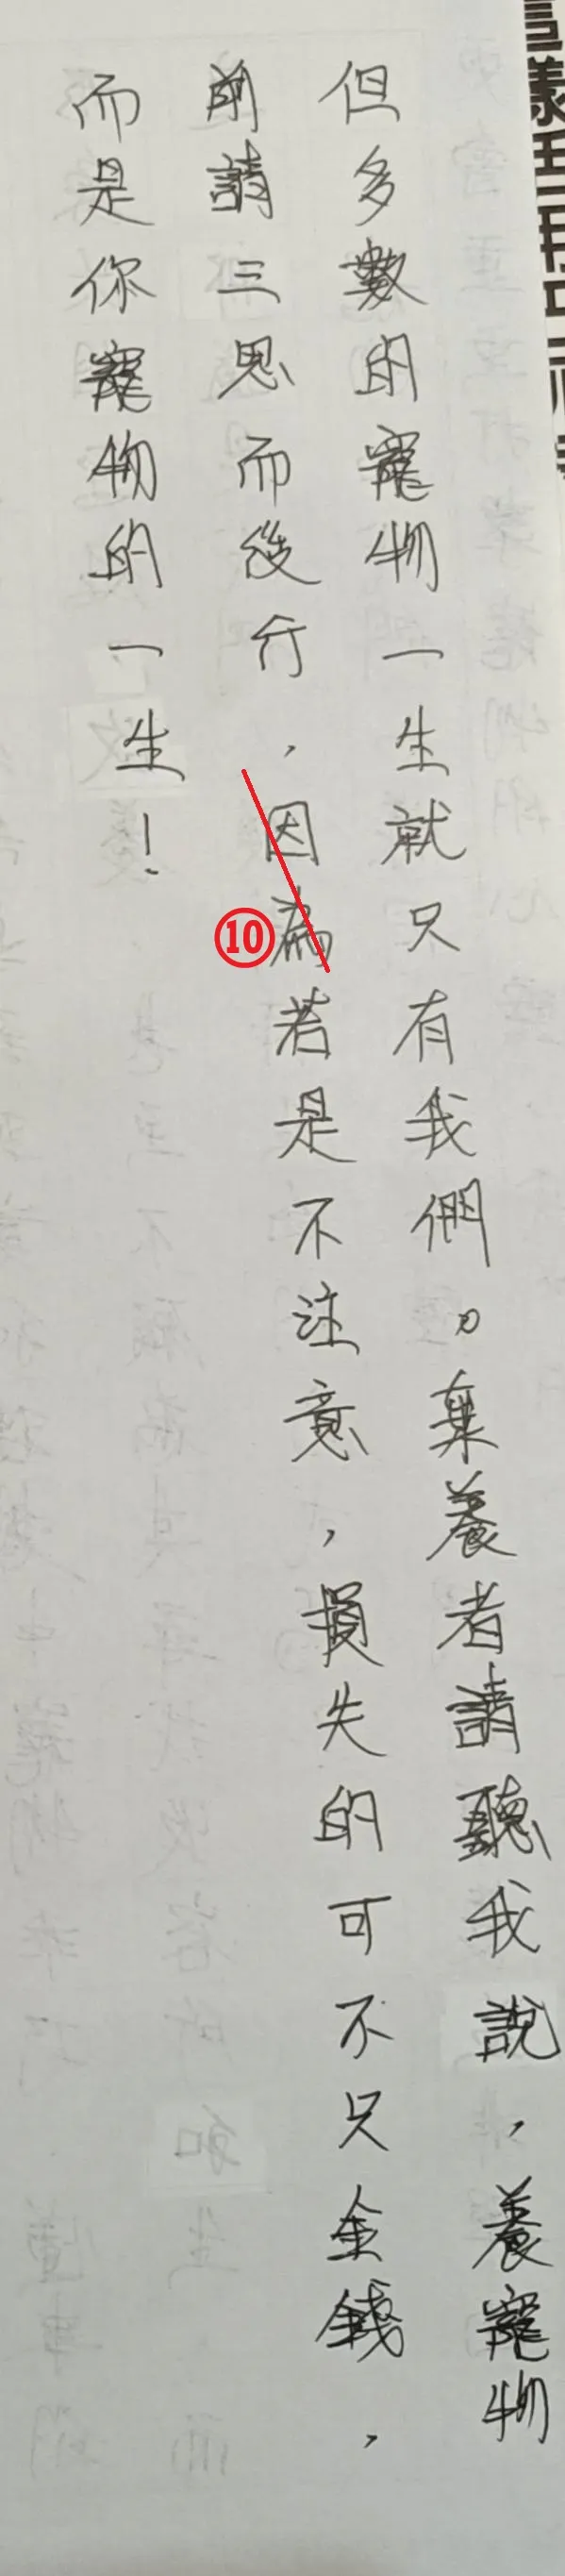 但多數的寵物一生就只有我們。棄養者請聽我說，養寵物
前請三思而後行，因為若是不注意，損失的可不只金錢，
而是你寵物的一生！
⑩